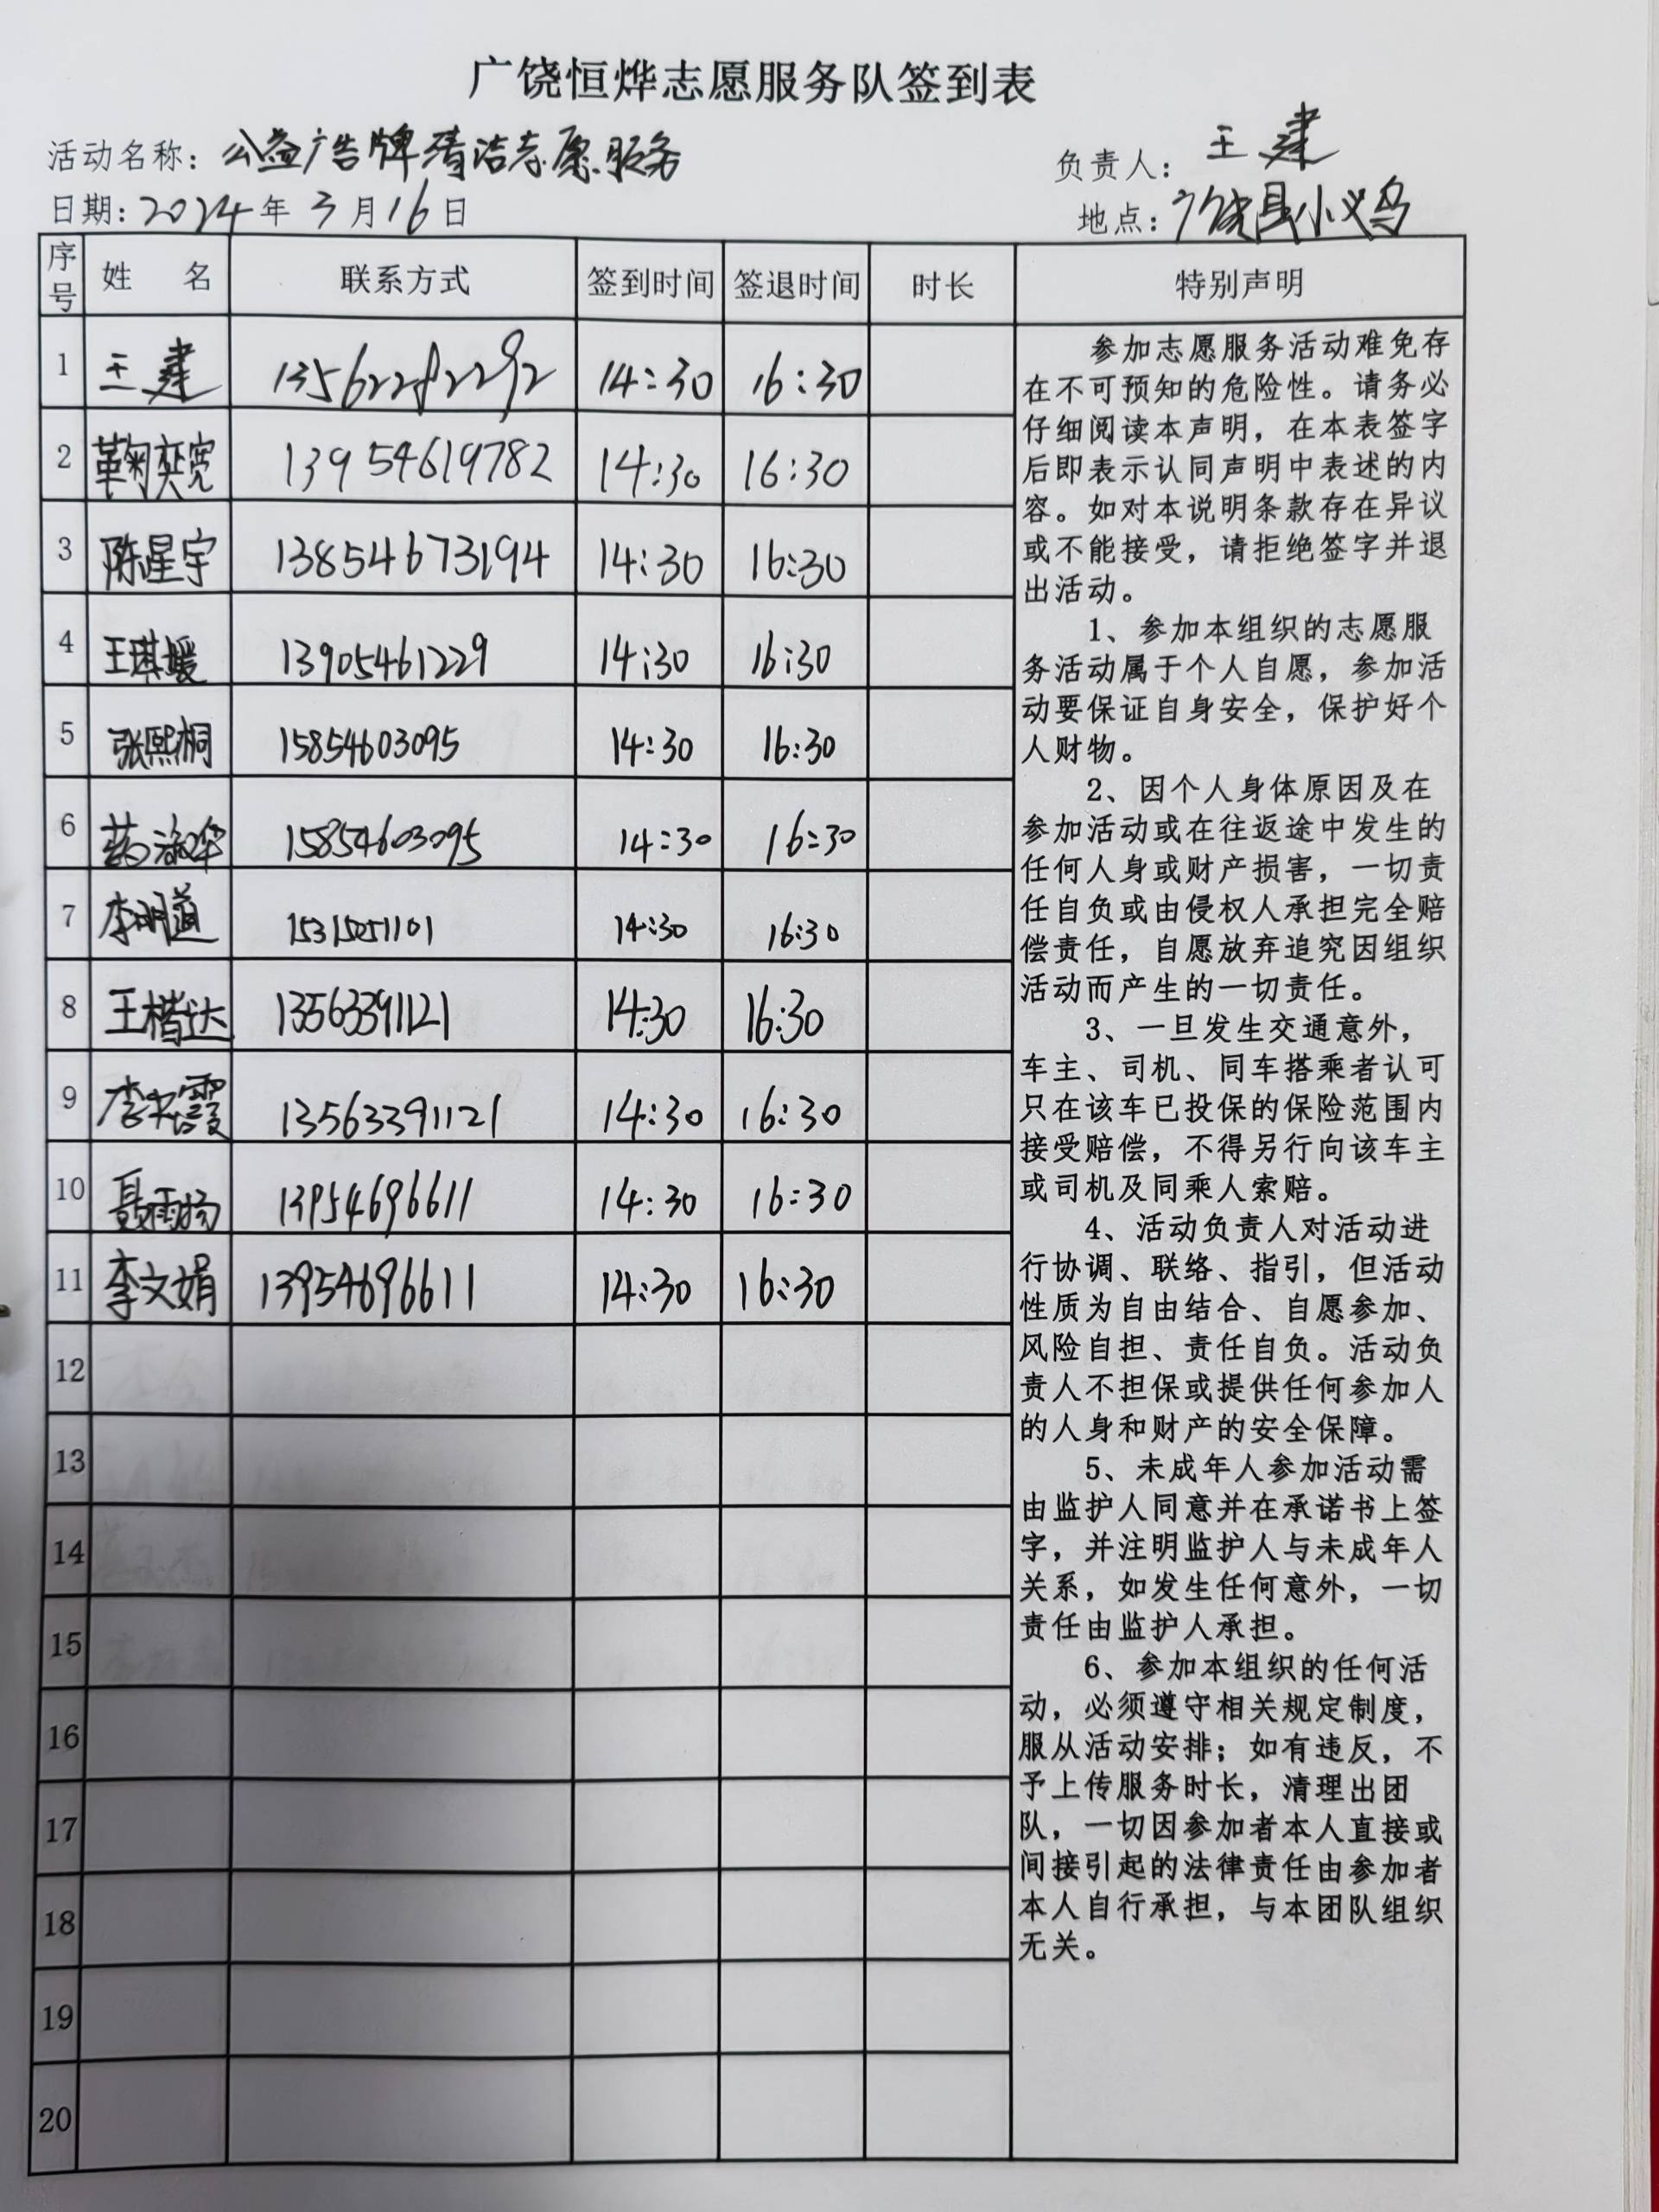 广饶恒烨志愿服务队签到表
活动名称：公益广告牌清洁志愿服务 负责人：王建
日期：2024年3月16日 地点：广饶县小义乌
序号 姓 名 联系方式 签到时间 签退时间 时长 特别声明
1 王建 13562282292 14:30 16:30
2 鞠奕宽 13954619782 14:30 16:30
3 陈星宇 13854673194 14:30 16:30
4 王琪媛 13905461229 14:30 16:30
5 张熙桐 15854603095 14:30 16:30
6 15854603095 14:30 16:30
7 李明道 14:30 16:30
8 王楷达 13563391121 14:30 16:30
9 13563391121 14:30 16:30
10 聂雨扬 13954696611 14:30 16:30
11 李文娟 13954696611 14:30 16:30
12
13
14
15
16
17
18
19
20
参加志愿服务活动难免存
在不可预知的危险性。请务必
仔细阅读本声明，在本表签字
后即表示认同声明中表述的内
容。如对本说明条款存在异议
或不能接受，请拒绝签字并退
出活动。
1、参加本组织的志愿服
务活动属于个人自愿，参加活
动要保证自身安全，保护好个
人财物。
2、因个人身体原因及在
参加活动或在往返途中发生的
任何人身或财产损害，一切责
任自负或由侵权人承担完全赔
偿责任，自愿放弃追究因组织
活动而产生的一切责任。
3、一旦发生交通意外，
车主、司机、同车搭乘者认可
只在该车已投保的保险范围内
接受赔偿，不得另行向该车主
或司机及同乘人索赔。
4、活动负责人对活动进
行协调、联络、指引，但活动
性质为自由结合、自愿参加、
风险自担、责任自负。活动负
责人不担保或提供任何参加人
的人身和财产的安全保障。
5、未成年人参加活动需
由监护人同意并在承诺书上签
字，并注明监护人与未成年人
关系，如发生任何意外，一切
责任由监护人承担。
6、参加本组织的任何活
动，必须遵守相关规定制度，
服从活动安排；如有违反，不
予上传服务时长，清理出团
队，一切因参加者本人直接或
间接引起的法律责任由参加者
本人自行承担，与本团队组织
无关。